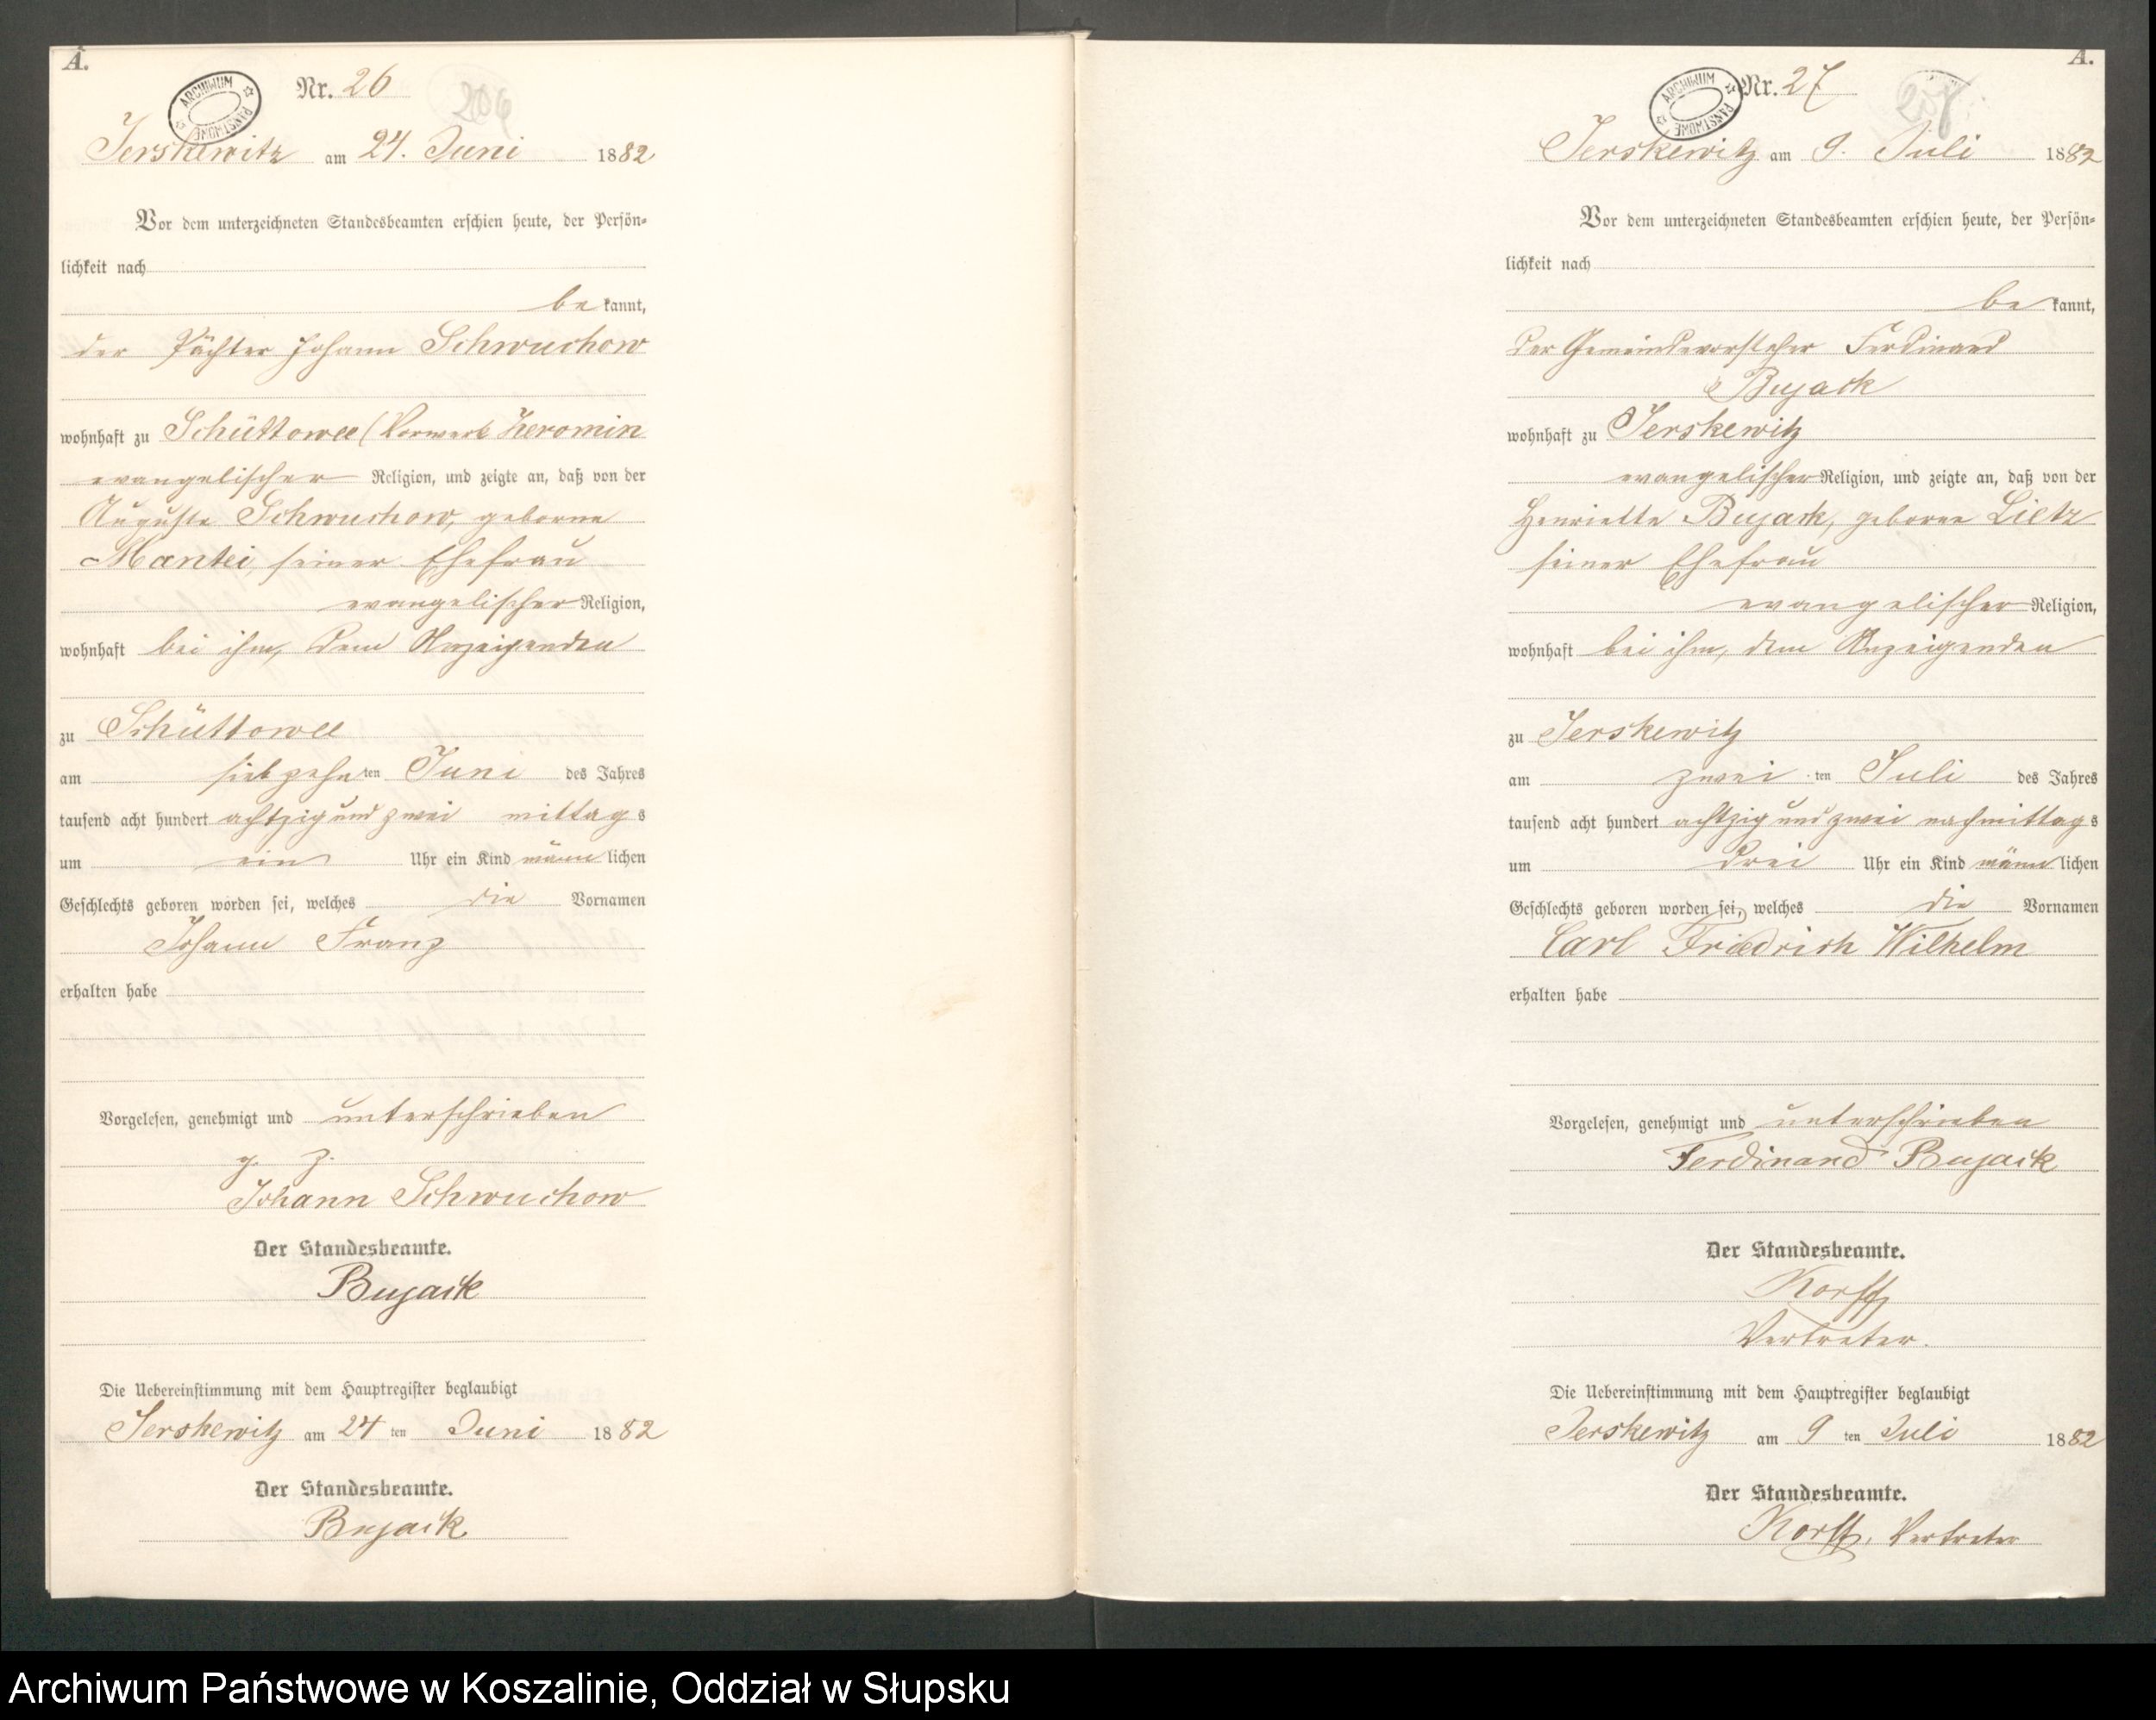 A.
ARCHIWUM PAŃSTWOWE
Nr. 26
206
Jerskewitz am 24. Juni 1882
Vor dem unterzeichneten Standesbeamten erschien heute, der Persön-
lichkeit nach
be kannt,
der Pächter Johann Schwuchow
wohnhaft zu Schüttowee (Vorwerk Zeromin
evangelischer Religion, und zeigte an, daß von der
Auguste Schwuchow, geborne
Mantei, seiner Ehefrau
evangelischer Religion,
wohnhaft bei ihm, dem Anzeigenden
zu Schüttowee
am siebzehn ten Juni des Jahres
tausend acht hundert achtzig und zwei mittag s
um ein Uhr ein Kind männ lichen
Geschlechts geboren worden sei, welches die Vornamen
Johann Franz
erhalten habe
Vorgelesen, genehmigt und unterschrieben
g. z.
Johann Schwuchow
Der Standesbeamte.
Bujack
Die Uebereinstimmung mit dem Hauptregister beglaubigt
Jerskewitz am 24 ten Juni 1882
Der Standesbeamte.
Bujack
A.
ARCHIWUM PAŃSTWOWE
Nr. 27
207
Jerskewitz am 9. Juli 1882
Vor dem unterzeichneten Standesbeamten erschien heute, der Persön-
lichkeit nach
be kannt,
der Gemeindevorsteher Ferdinand
Bujack
wohnhaft zu Jerskewitz
evangelischer Religion, und zeigte an, daß von der
Henriette Bujack, geborne Lietz
seiner Ehefrau
evangelischer Religion,
wohnhaft bei ihm, dem Anzeigenden
zu Jerskewitz
am zwei ten Juli des Jahres
tausend acht hundert achtzig und zwei nachmittag s
um drei Uhr ein Kind männ lichen
Geschlechts geboren worden sei, welches die Vornamen
Carl Friedrich Wilhelm
erhalten habe
Vorgelesen, genehmigt und unterschrieben
Ferdinand Bujack
Der Standesbeamte.
Korff
Vertreter.
Die Uebereinstimmung mit dem Hauptregister beglaubigt
Jerskewitz am 9 ten Juli 1882
Der Standesbeamte.
Korff, Vertreter
Archiwum Państwowe w Koszalinie, Oddział w Słupsku